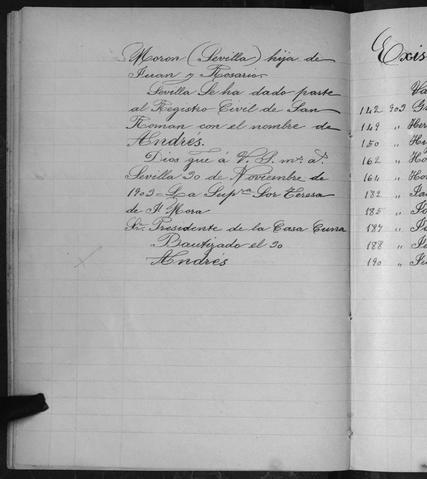 Moron (Sevilla) hija de
Juan y Rosario
Sevilla Se ha dado parte
al Registro Civil de San
Roman con el nombre de
Andrés.
Dios gue á V. S. ms. as.
Sevilla 20 de Noviembre de
1902 = La Supra Sor Teresa
de Sn Mora
Sr. Presidente de la Casa Cuna
Bautizado el 20
Andrés
Exis
142 902
149 "
150 "
162 "
164 "
182 "
185 "
187 "
188 "
190 "